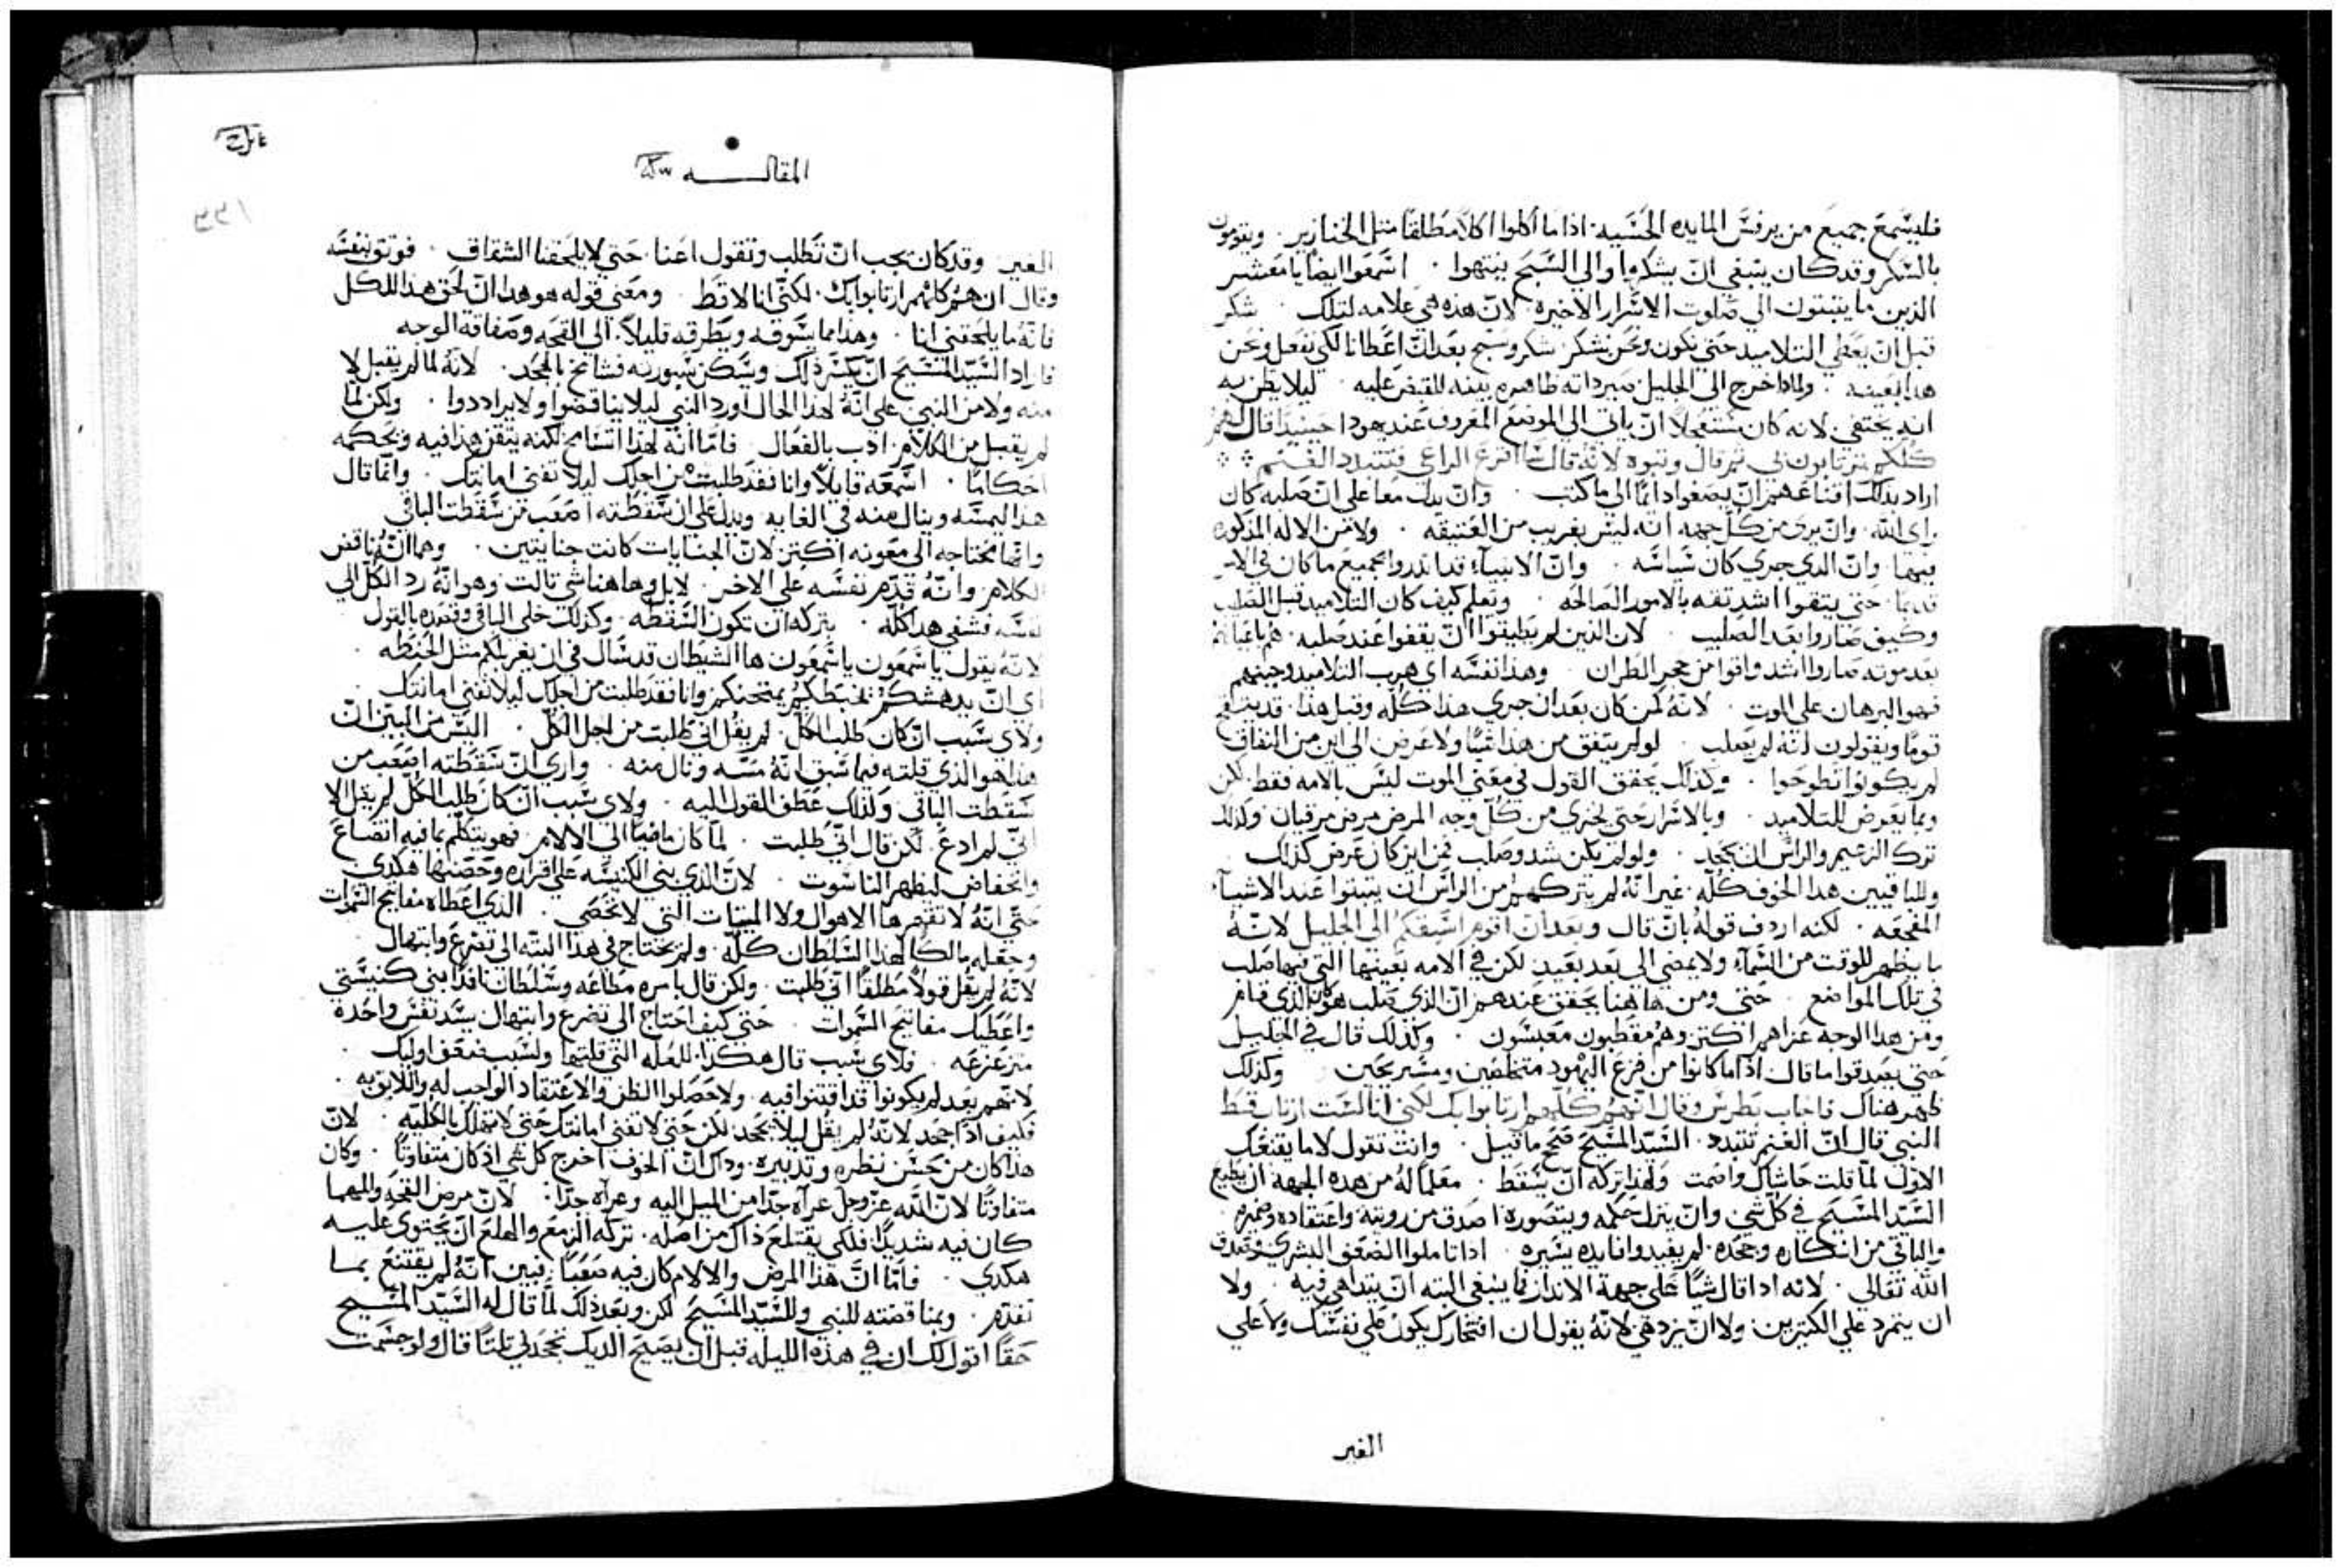 فليسمع جميع من يرفس المايده الحسيه. اذا ما اكلوا اكلاً مطلقاً متل الخنازير. ويقومون
بالسكر وقد كان ينبغي ان يشكروا والي السبح ينتهوا. اسمعوا ايضاً يا معشر
الذين ما يتبتون الي صلوت الاسرار الاخيره. لان هذه هي علامه لتلك. شكر
قبل ان يعطي التلاميد حتي نكون ونحن نشكر. شكر وسبح بعد ان اعطانا لكي نفعل ونحن
هدا بعينه. ولمادا خرج الي الجليل صير داته ظاهره بينه للقبض عليه. ليلا يظن به
انه يختفي لانه كان مستعجلاً ان ياتي الي الموضع المعروف عند يهودا حينيداً قال لهم
كلكم ترتابون بي تم قال ونبوه لانه قال انا افزع الراعي فتتبدد الغنم
اراد بدلك اقناعهم ان يصغوا دايماً الي ما كتب. وان يدل معا علي ان صلبه كان
براي الله. وان يري من كل جهه انه ليس بغريب من العتيقه. ولا من الاله المذكوره
فيها وان الدي جري كان سياسه. وان الانبياء قد اندروا بجميع ما كان في الامر
قديماً. حتي يتقوا اشد تقه بالامور الصالحه. وتعلم كيف كان التلاميد قبل الصلب
وكيف صاروا بعد الصليب. لان الذين لم يطيقوا ان يقفوا عند صلبه. هم باعيانهم
بعد موته صاروا اشد واقوا من حجر الطران. وهدا نفسه اي هرب التلاميد وجبنهم
فهو البرهان علي الموت. لانه لمن كان بعد ان جري هدا كله وقبل هدا. قد يتقح
قوماً ويقولون انه لم يصلب. لو لم يتفق من هدا شياً ولا عرض الي اين من النفاق
لم يكونوا تطوحوا. وكذلك يحقق القول في معني الموت ليس بالامه فقط. لكن
وبما يعرض للتلاميد. وبالاسرار حتي يخزي من كل وجه المرض مرض مرقيان ولذلك
ترك الزعيم والراس ان يجحد. ولو لم يكن شد وصلب فمن اين كان عرض كذلك
وللباقيين هدا الخوف كله. غير انه لم يتركهم من الراس ان يتبتوا عند الاشياء
المفجعه. لكنه اردف قوله بان قال وبعد ان اقوم اسبقكم الي الجليل لانه
ما يظهر للوقت من السماء ولا يمضي الي بعد بعيد لكن في الامه بعينها التي فيها صلب
في تلك المواضع. حتي ومن هاهنا يحقق عندهم ان الذي صلب هو كان الذي قام
ومن هدا الوجه عزاهم اكتر وهم مقطبون معبسون. وكذلك قال في الجليل
حتي يصدقوا ما قال. اذا ما كانوا من فزع اليهود متخلفين ومستريحين وكذلك
ظهر هناك فاجاب بطرس وقال انهم كلهم ارتابوا بك لكني انا لست ارتاب قط
النبي قال ان الغنم تتبدد. السيد المسيح صحح ما قيل. وانت تقول لا ما يقنعك
الاول لما قلت حاشاك وافمت ولهذا تركه ان يسقط. معلماً له من هذه الجهه ان يطيع
السيد المسيح في كل شي وان ينزل حكمه ويتصوره اصدق من رويته واعتقاده وضميره.
والباقي من انكاره وجحده. لم يفيدوا فايده يسيره. اذا تاملوا الضعف البشري وتصديق
الله تعالي. لانه اذا قال شياً علي جهة الاندار فما ينبغي البته ان يتداهي فيه. ولا
ان يتمرد علي الكتيرين ولا ان يزدهي لانه يقول ان افتخارك يكون علي نفسك ولا علي
الغير
المقاله
الغير. وقد كان يجب ان تطلب وتقول اعنا. حتي لا يلحقنا الشقاق. فوتق بنفسه
وقال ان هم كلهم ارتابوا بك. لكني انا لا قط ومعني قوله هو هدا ان لحق هدا للكل
فانه ما يلحقني انا. وهذا مما يسوقه ويطرقه قليلاً. الي القحه وصفاقة الوجه
فاراد السيد المسيح ان يكسر ذلك وسكن سورته فسامح بالجحد. لانه لما لم يقبل لا
منه ولا من النبي. علي انه لهدا الحال اورد النبي ليلا يناقضوا ولا يراددوا. ولكن لما
لم يقبل من الكلام. ادب بالفعال فاما انه لهدا سامح لكنه يتقن هدا فيه ويحكمه
احكاماً. اسمعه قايلاً وانا فقد طلبت من اجلك ليلا تفني امانتك. وانما قال
هدا ليمسه وينال منه في الغايه ويدل علي ان سقطته اصعب من سقطت الباقي
وانما محتاجه الي معونه اكتر لان الجنايات كانت جنايتين. وهما انه ناقض
الكلام وانه قدم نفسه علي الاخر. لا بل وهاهنا شي تالت وهو انه رد الكل الي
نفسه فشفي هدا كله. بتركه ان تكون السقطه وكذلك خلي الباقي وقصده بالقول
لانه يقول يا سمعون يا سمعون ها الشيطان قد سال في ان يغربلكم متل الحنطه.
اي ان يدهشكم يخبطكم يمتحنكم وانا فقد طلبت من اجلك ليلا تفني امانتك.
ولاي سبب ان كان طلب الكل لم يقل اني طلبت من اجل الكل. اليس من البين ان
هدا هو الذي قلته فيما سبق انه مسه ونال منه. واري ان سقطته اصعب من
سقطت الباقي ولذلك عطف القول اليه. ولاي سبب ان كان طلب الكل لم يقل الا
اني لم ادع لكن قال اني طلبت. لما كان ماضياً الي الالام. فهو يتكلم بما فيه اتضاع
وانخفاض ليظهر الناسوت. لان الذي بني الكنيسه علي اقراره وحصنها هكدي
حتي انه لا تقهرها الاهوال ولا الميتات التي لا تحصي. الذي اعطاه مفاتيح السموات
وجعله مالكاً لهدا السلطان كله. ولم يحتاج في هدا البته الي تضرع وابتهال
لانه لم يقل قولاً مطلقاً اني طلبت. ولكن قال بامره مطاعه وسلطان نافد ابني كنيستي
واعطيك مفاتيح السموات. حتي كيف احتاج الي تضرع وابتهال يسد نفس واحده
متزعزعه. فلاي سبب قال هكدا. للعله التي قلتها ولسبب ضعف اوليك.
لانهم بعد لم يكونوا قد اقتنوا فيه. ولا حصلوا الظن والاعتقاد الواجب له واللايق به.
فكيف اذاً جحد لانه لم يقل ليلا تجحد لكن حتي لا تفني امانتك حتي لا تهلك بالكليه. لان
هدا كان من حسن نظره وتدبيره. وذاك ان الخوف اخرج كل شي اذ كان متفاوتاً. وكان
متفاوتاً لان الله عز وجل عراه جداً من الميل اليه وعراه جداً. لان مرض القحه والمهما
كان فيه شديداً فلكي يقتلع ذاك من اصله. تركه الزمع والهلع ان يحتوي عليه
هكدي. فاما ان هذا المرض والالام كان فيه صعباً. فبين انه لم يقتنع بما
تقدم. وبمناقضته للنبي وللسيد المسيح لكن وبعد ذلك لما قال له السيد المسيح
حقاً اقول لك ان في هذه الليله قبل ان يصيح الديك تجحدني تلتاً قال ولو جشمت